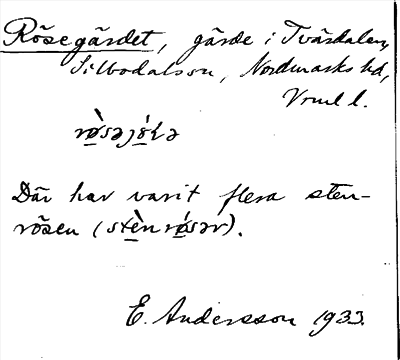 Rösegärdet, gärde i Tvärdalen,
Silbodals sn, Nordmarks hd,
Vrml l.
rø̀səjǿɭə
Där har varit flera sten-
rösen (stɛ̀nrǿsər).
E. Andersson 1933.